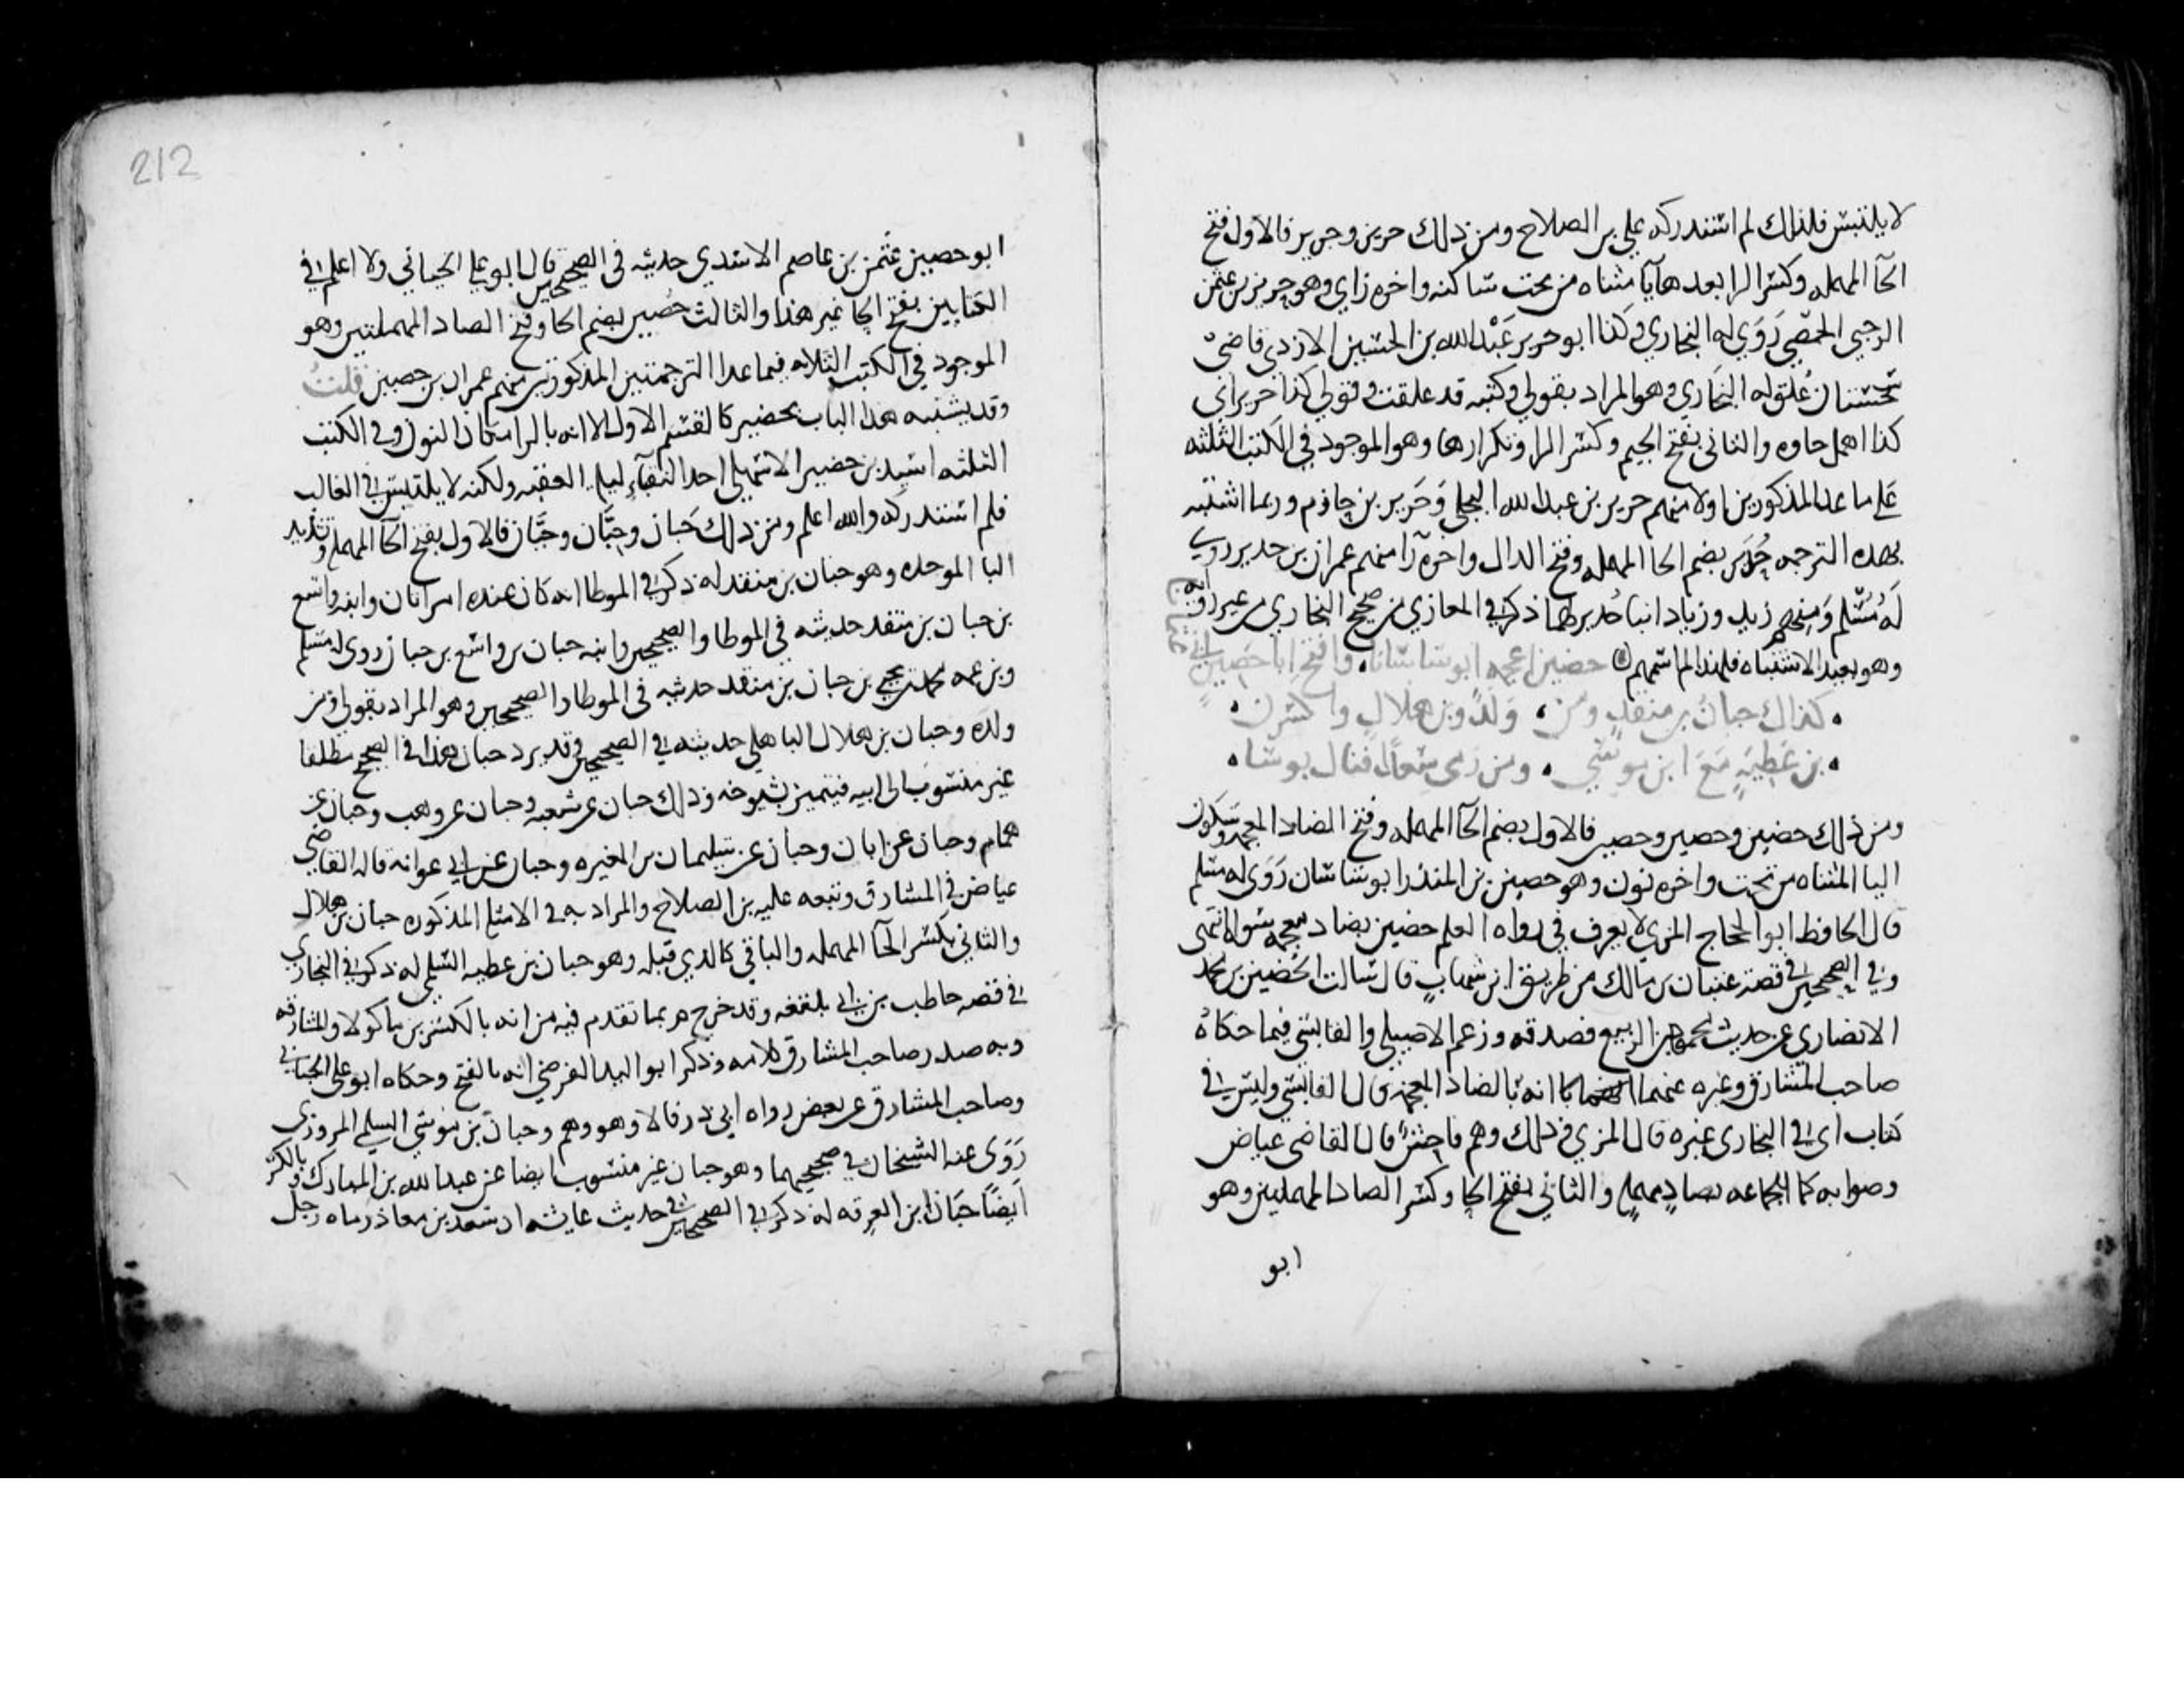 لا يلتبس فلذلك لم استدركه على بن الصلاح ومن ذلك حريز وجرير فالاول فتح
الحآ المهمله وكسر الرا بعدها يا مثناه من تحت ساكنه واخره زاي وهو حريز بن عثمن
الرحبي الحمصي روى له البخاري وكذا ابو حريز عبد الله بن الحسين الازدي قاضي
سجستان علق له البخاري وهو المراد بقولي وكتبه قد علقت وقولي كذا حريز اي
كذا اهمل حاوه والثاني بفتح الجيم وكسر الرا وتكرارها وهو الموجود في الكتب الثلثه
على ما عدا المذكورين اولا منهم جرير بن عبد الله البجلي وجرير بن حازم وربما اشتبه
بهذه الترجمه حُدَير بضم الحا المهمله وفتح الدال واخره را منهم عمران بن حدير روى
له مسلم ومنهم زيد وزياد ابنا حدير لهما ذكر في المغازي من صحيح البخاري من غير روايه
وهو بعيد الاشتباه فلهذا لم اسمهم حضين اعجمه ابو ساسانا وافتح ابا حصين اي عثمانا
كذاك حبان بن منقذ ومن ولده وبن هلال واكسرن
بن عطية مع ابن موسى ومن رمى سعدا فنال بوسا
ومن ذلك حضين وحصين وحصين فالاول بضم الحآ المهمله وفتح الضاد المعجمه وسكون
اليا المثناه من تحت واخره نون وهو حضين بن المنذر ابو ساسان روى له مسلم
قال الحافظ ابو الحجاج المزي لا يعرف في رواه العلم حضين بضاد معجمه سواه انتهى
وفي الصحيحين في قصة عتبان بن مالك من طريق ابن شهاب قال سالت الحضين بن محمد
الانصاري عن حديث محمود بن الربيع فصدقه وزعم الاصيلي والقابسي فيما حكاه
صاحب المشارق وغيره عنهما انه بالضاد المعجمه قال القابسي وليس في
كتاب اي في البخاري غيره قال المزي وذلك وهم فاحش قال القاضي عياض
وصوابه كما للجماعه بصاد مهمله والثاني بفتح الحا وكسر الصاد المهملتين وهو
ابو
212
ابو حصين عثمن بن عاصم الاسدي حديثه في الصحيحين قال ابو علي الجياني ولا اعلم في
الكتابين بفتح الحا غير هذا والثالث حصين بضم الحا وفتح الصاد المهملتين وهو
الموجود في الكتب الثلاثه فيما عدا الترجمتين المذكورتين منهم عمران بن حصين قلت
وقد يشتبه هذا الباب بحضير كالقسم الاول الا انه بالرا مكان النون وفي الكتب
الثلثه اسيد بن حضير الاشهلي احد النقبآء ليلة العقبه ولكنه لا يلتبس في الغالب
فلم استدركه والله اعلم ومن ذلك حَبان وحِبَّان وحَيَّان فالاول بفتح الحآ المهمله وتشديد
البا الموحده وهو حبان بن منقذ له ذكر في الموطا انه كان عنده امراتان وابنه واسع
بن حبان بن منقذ حديثه في الموطا والصحيحين وابنه حبان بن واسع بن حبان روى له مسلم
وبن عمه محمد بن يحيى بن حبان بن منقذ حديثه في الموطا والصحيحين وهو المراد بقولي ومن
ولده وحبان بن هلال الباهلي حديثه في الصحيحين وقد يرد حبان هذا في الصحيح مطلقا
غير منسوب الى ابيه فيتميز بشيوخه وذلك حبان عن شعبه وحبان عن وهب وحبان عن
همام وحبان عن ابان وحبان عن سليمان بن المغيره وحبان عن ابي عوانه قاله القاضي
عياض في المشارق وتبعه عليه بن الصلاح والمراد به في الامثله المذكوره حبان بن هلال
والثاني بكسر الحآ المهمله والباقي كالذي قبله وهو حبان بن عطيه السلمي له ذكر في البخاري
في قصه حاطب بن ابي بلتعه وقد خرج مر بما تقدم فيه من انه بالكسر بن ماكولا والمشارقه
وبه صدر صاحب المشارق كلامه وذكر ابو الوليد الفرضي انه بالفتح وحكاه ابو علي الجياني
وصاحب المشارق عن بعض رواه ابي ذر قالا وهو وهم وحبان بن موسى السلمي المروزي
روى عنه الشيخان في صحيحيهما وهو حبان غير منسوب ايضا عن عبد الله بن المبارك وبالكسر
ايضًا حبان بن العرقه له ذكر في الصحيحين في حديث عايشه ان سعد بن معاذ رماه رجل